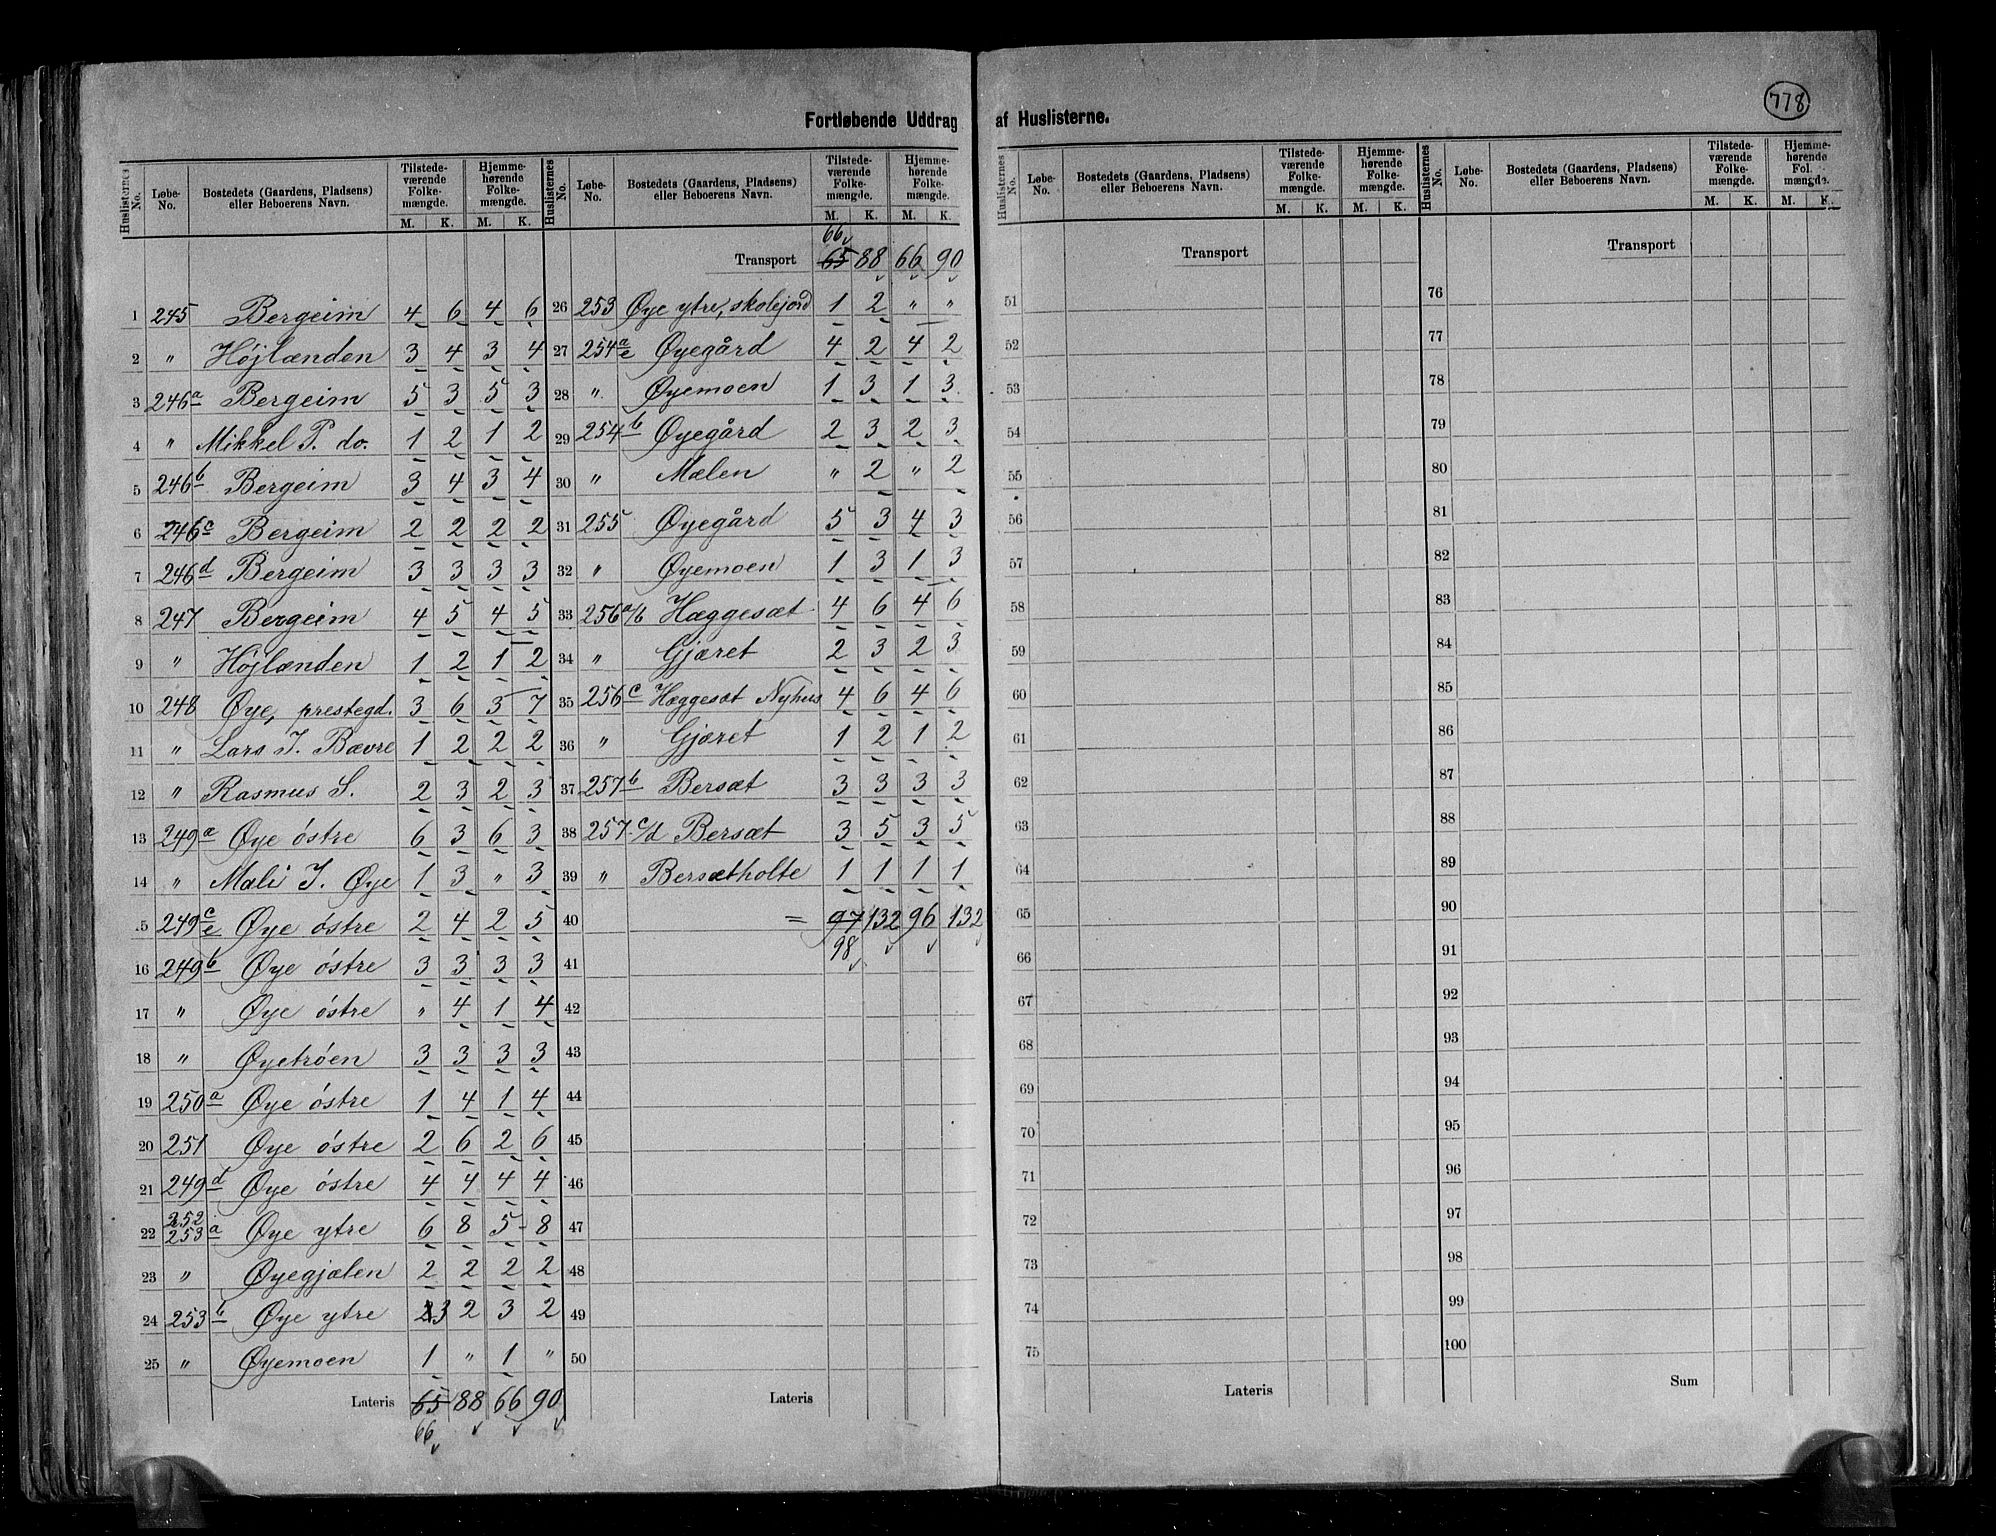 778
Fortløbende Uddrag af Huslisterne.
Huslisternes No. Løbe-No. Bostedets (Gaardens, Pladsens) eller Beboerens Navn. Tilstedeværende Folkemængde. M. K. Hjemmehørende Folkemængde. M. K.
1 245 Bergeim 4 6 4 6
2 " Højlænden 3 4 3 4
3 246a Bergeim 5 3 5 3
4 " Mikkel P. do. 1 2 1 2
5 246b Bergeim 3 4 3 4
6 246c Bergeim 2 2 2 2
7 246d Bergeim 3 3 3 3
8 247 Bergeim 4 5 4 5
9 " Højlænden 1 2 1 2
10 248 Øye, prestegd. 3 6 3 7
11 " Lars J. Bævre 1 2 2 2
12 " Rasmus S. 2 3 2 3
13 249a Øye östre 6 3 6 3
14 " Mali J. Øye 1 3 " 3
15 249c/e Øye östre 2 4 2 5
16 249b Øye östre 3 3 3 3
17 " Øye östre " 4 1 4
18 " Øyetröen 3 3 3 3
19 250a Øye östre 1 4 1 4
20 251 Øye östre 2 6 2 6
21 249d Øye östre 4 4 4 4
22 252 253a Øye ytre 6 8 5 8
23 " Øyegjælen 2 2 2 2
24 253b Øye ytre 23 2 3 2
25 " Øyemoen 1 " 1 "
Lateris 65 88 66 90
66
Huslisternes No. Løbe-No. Bostedets (Gaardens, Pladsens) eller Beboerens Navn. Tilstedeværende Folkemængde. M. K. Hjemmehørende Folkemængde. M. K.
66
Transport 65 88 66 90
26 253 Øye ytre, skolejord 1 2 " "
27 254a/e Øyegård 4 2 4 2
28 " Øyemoen 1 3 1 3
29 254b Øyegård 2 3 2 3
30 " Mælen " 2 " 2
31 255 Øyegård 5 3 4 3
32 " Øyemoen 1 3 1 3
33 256a/b Hæggesæt 4 6 4 6
34 " Gjæret 2 3 2 3
35 256c Hæggesæt Nyhus 4 6 4 6
36 " Gjæret 1 2 1 2
37 257b Bersæt 3 3 3 3
38 257c/d Bersæt 3 5 3 5
39 " Bersætholte 1 1 1 1
40 = 97 132 96 132
98
41
42
43
44
45
46
47
48
49
50
Lateris
Huslisternes No. Løbe-No. Bostedets (Gaardens, Pladsens) eller Beboerens Navn. Tilstedeværende Folkemængde. M. K. Hjemmehørende Folkemængde. M. K.
Transport
51
52
53
54
55
56
57
58
59
60
61
62
63
64
65
66
67
68
69
70
71
72
73
74
75
Lateris
Huslisternes No. Løbe-No. Bostedets (Gaardens, Pladsens) eller Beboerens Navn. Tilstedeværende Folkemængde. M. K. Hjemmehørende Fol. mængde. M. K.
Transport
76
77
78
79
80
81
82
83
84
85
86
87
88
89
90
91
92
93
94
95
96
97
98
99
100
Sum